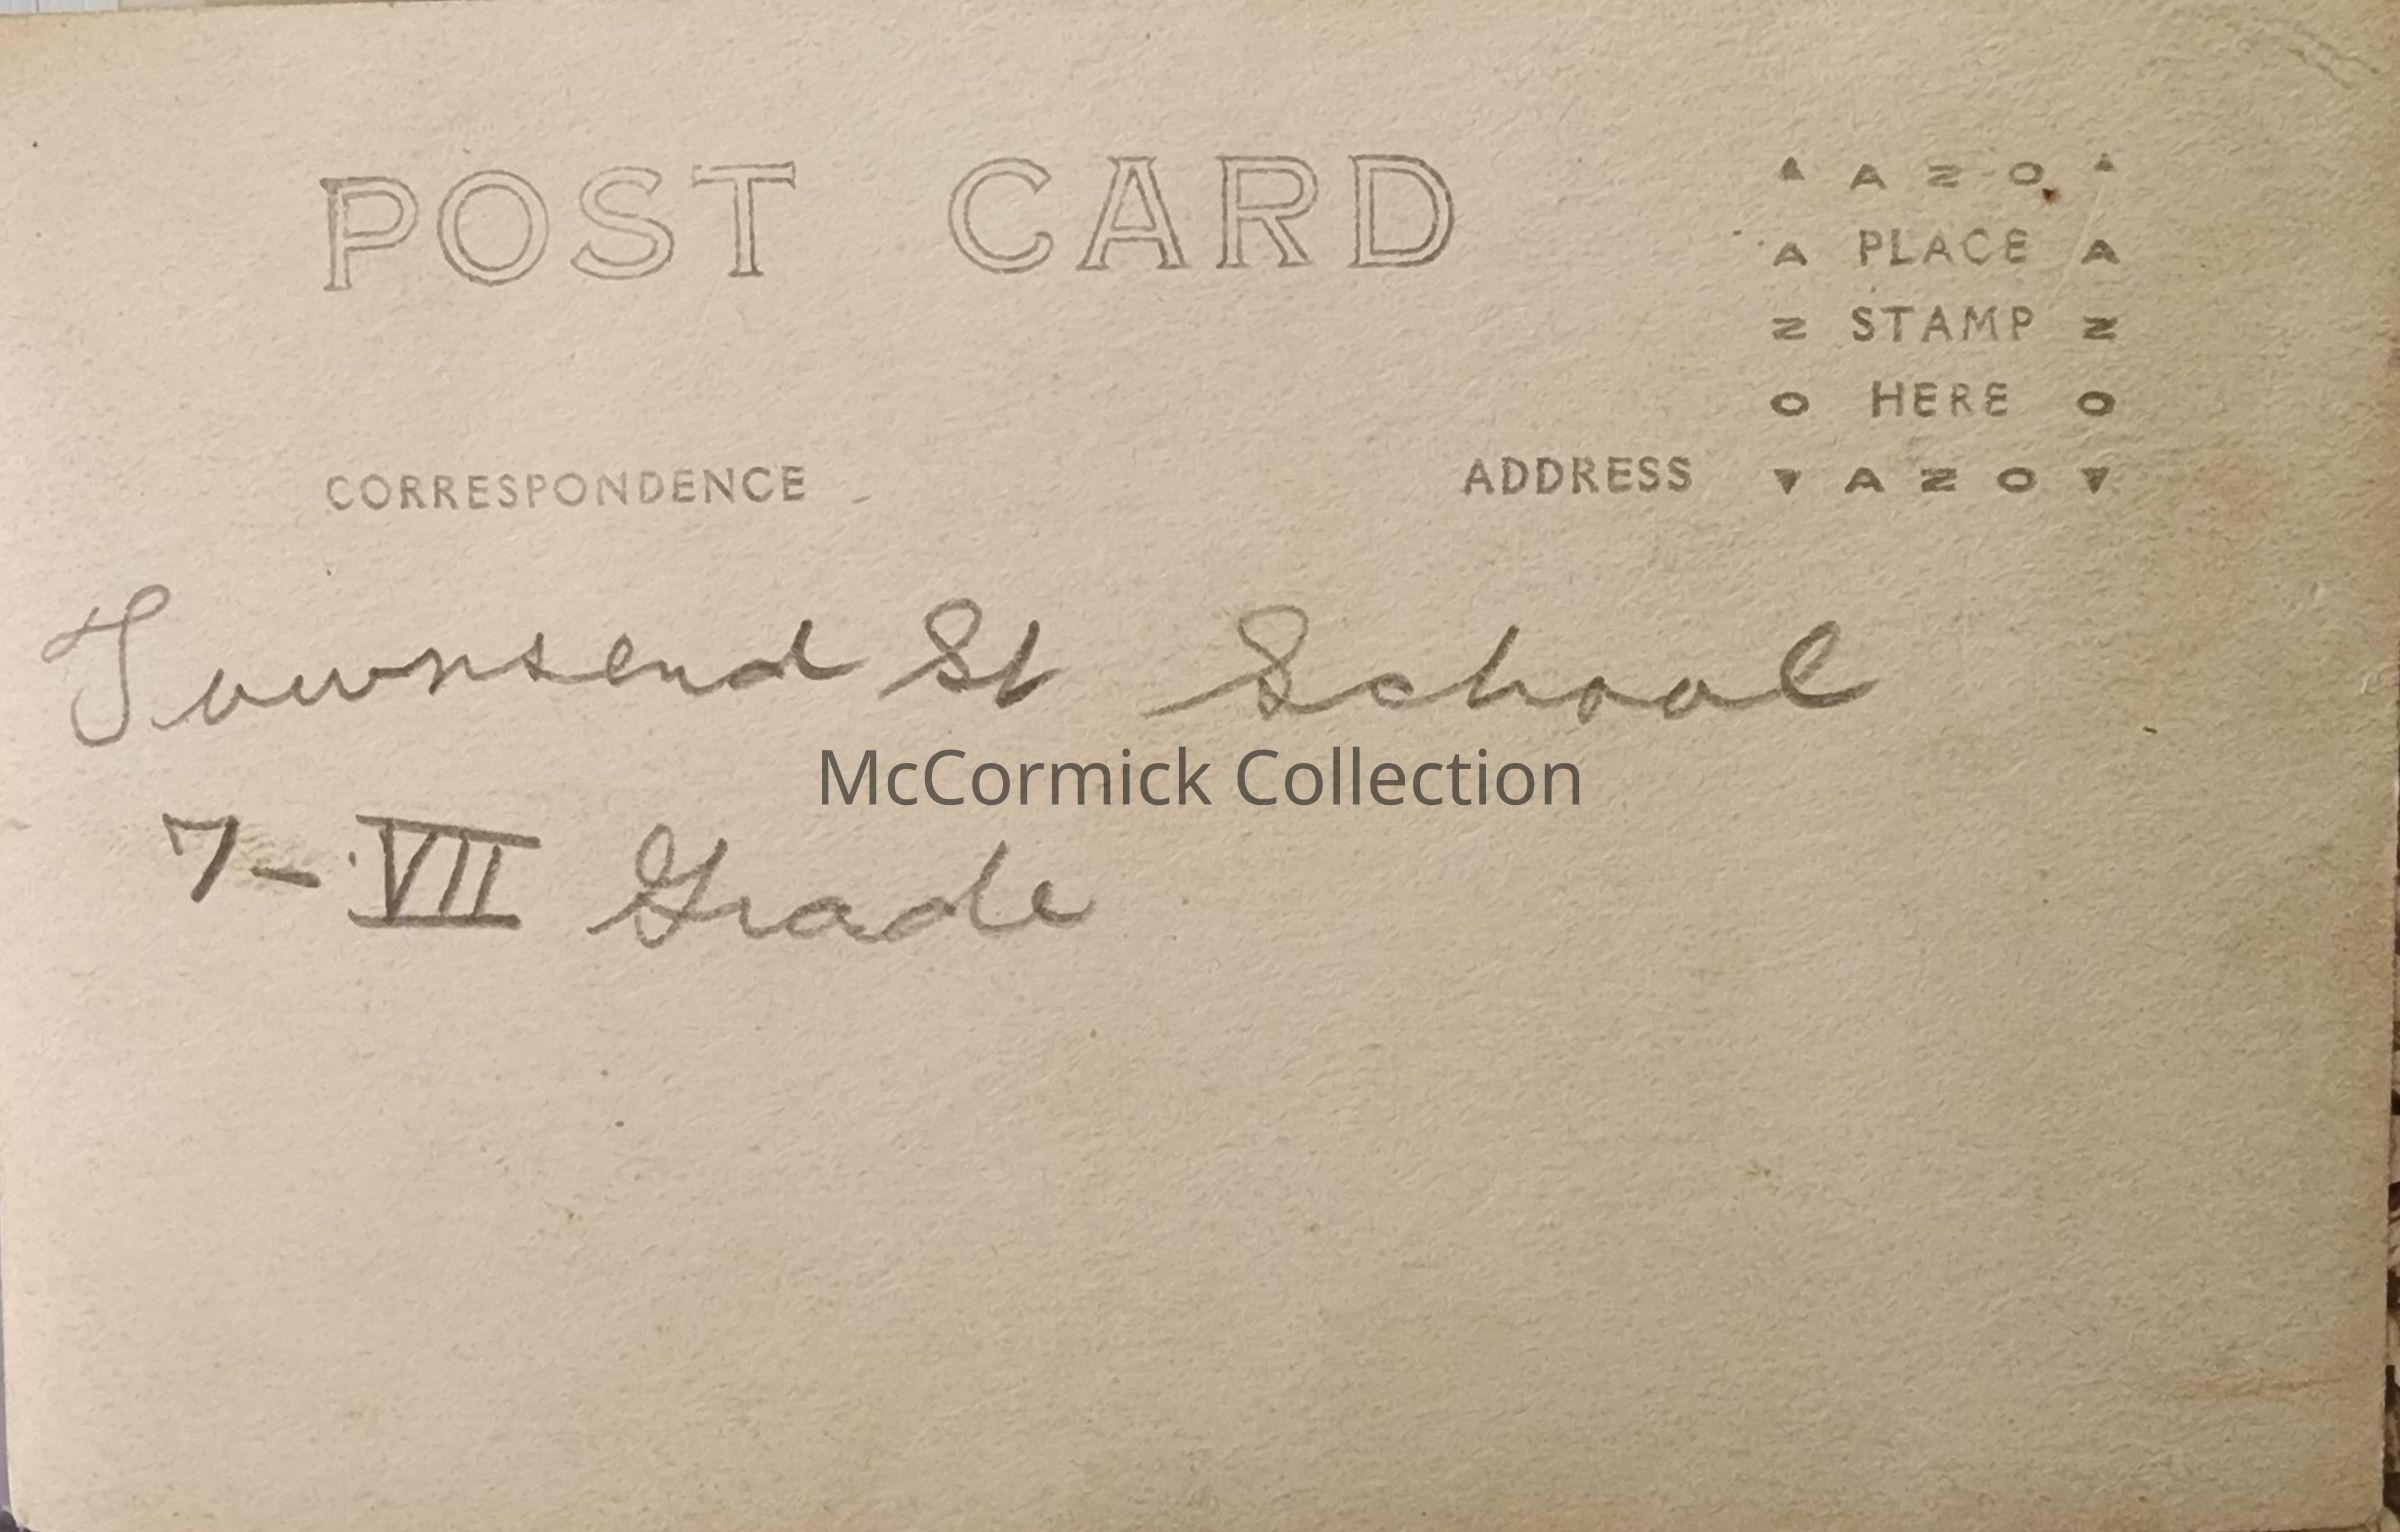 POST CARD
▲ AZO ▲
A PLACE A
Z STAMP Z
O HERE O
▼ AZO ▼
CORRESPONDENCE
ADDRESS
Townsend St School
McCormick Collection
7- VII Grade